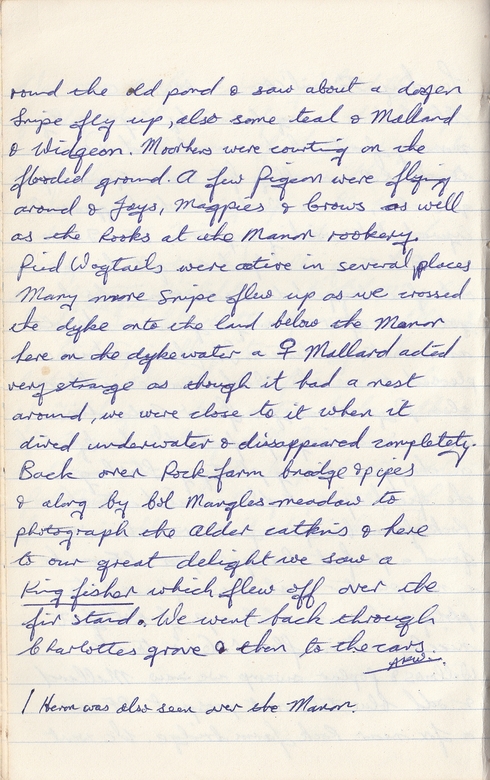 round the old pond & saw about a dozen
Snipe fly up, also some teal & Mallard
& Widgeon. Moorhens were courting on the
flooded ground. A few Pigeon were flying
around & Jays, Magpies & Crows as well
as the Rooks at the Manor rookery.
Pied Wagtails were active in several places
Many more Snipe flew up as we crossed
the dyke onto the land below the Manor
here on the dyke water a ♀ Mallard acted
very strange as though it had a nest
around, we were close to it when it
dived underwater & dissappeared completely.
Back over Rock farm bridge & pipes
& along by Col Mangles meadow to
photograph the Alder catkins & here
to our great delight we saw a
King fisher which flew off over the
fir stand. We went back through
Charlottes grove & then to the cars.
1 Heron was also seen over the Manor.